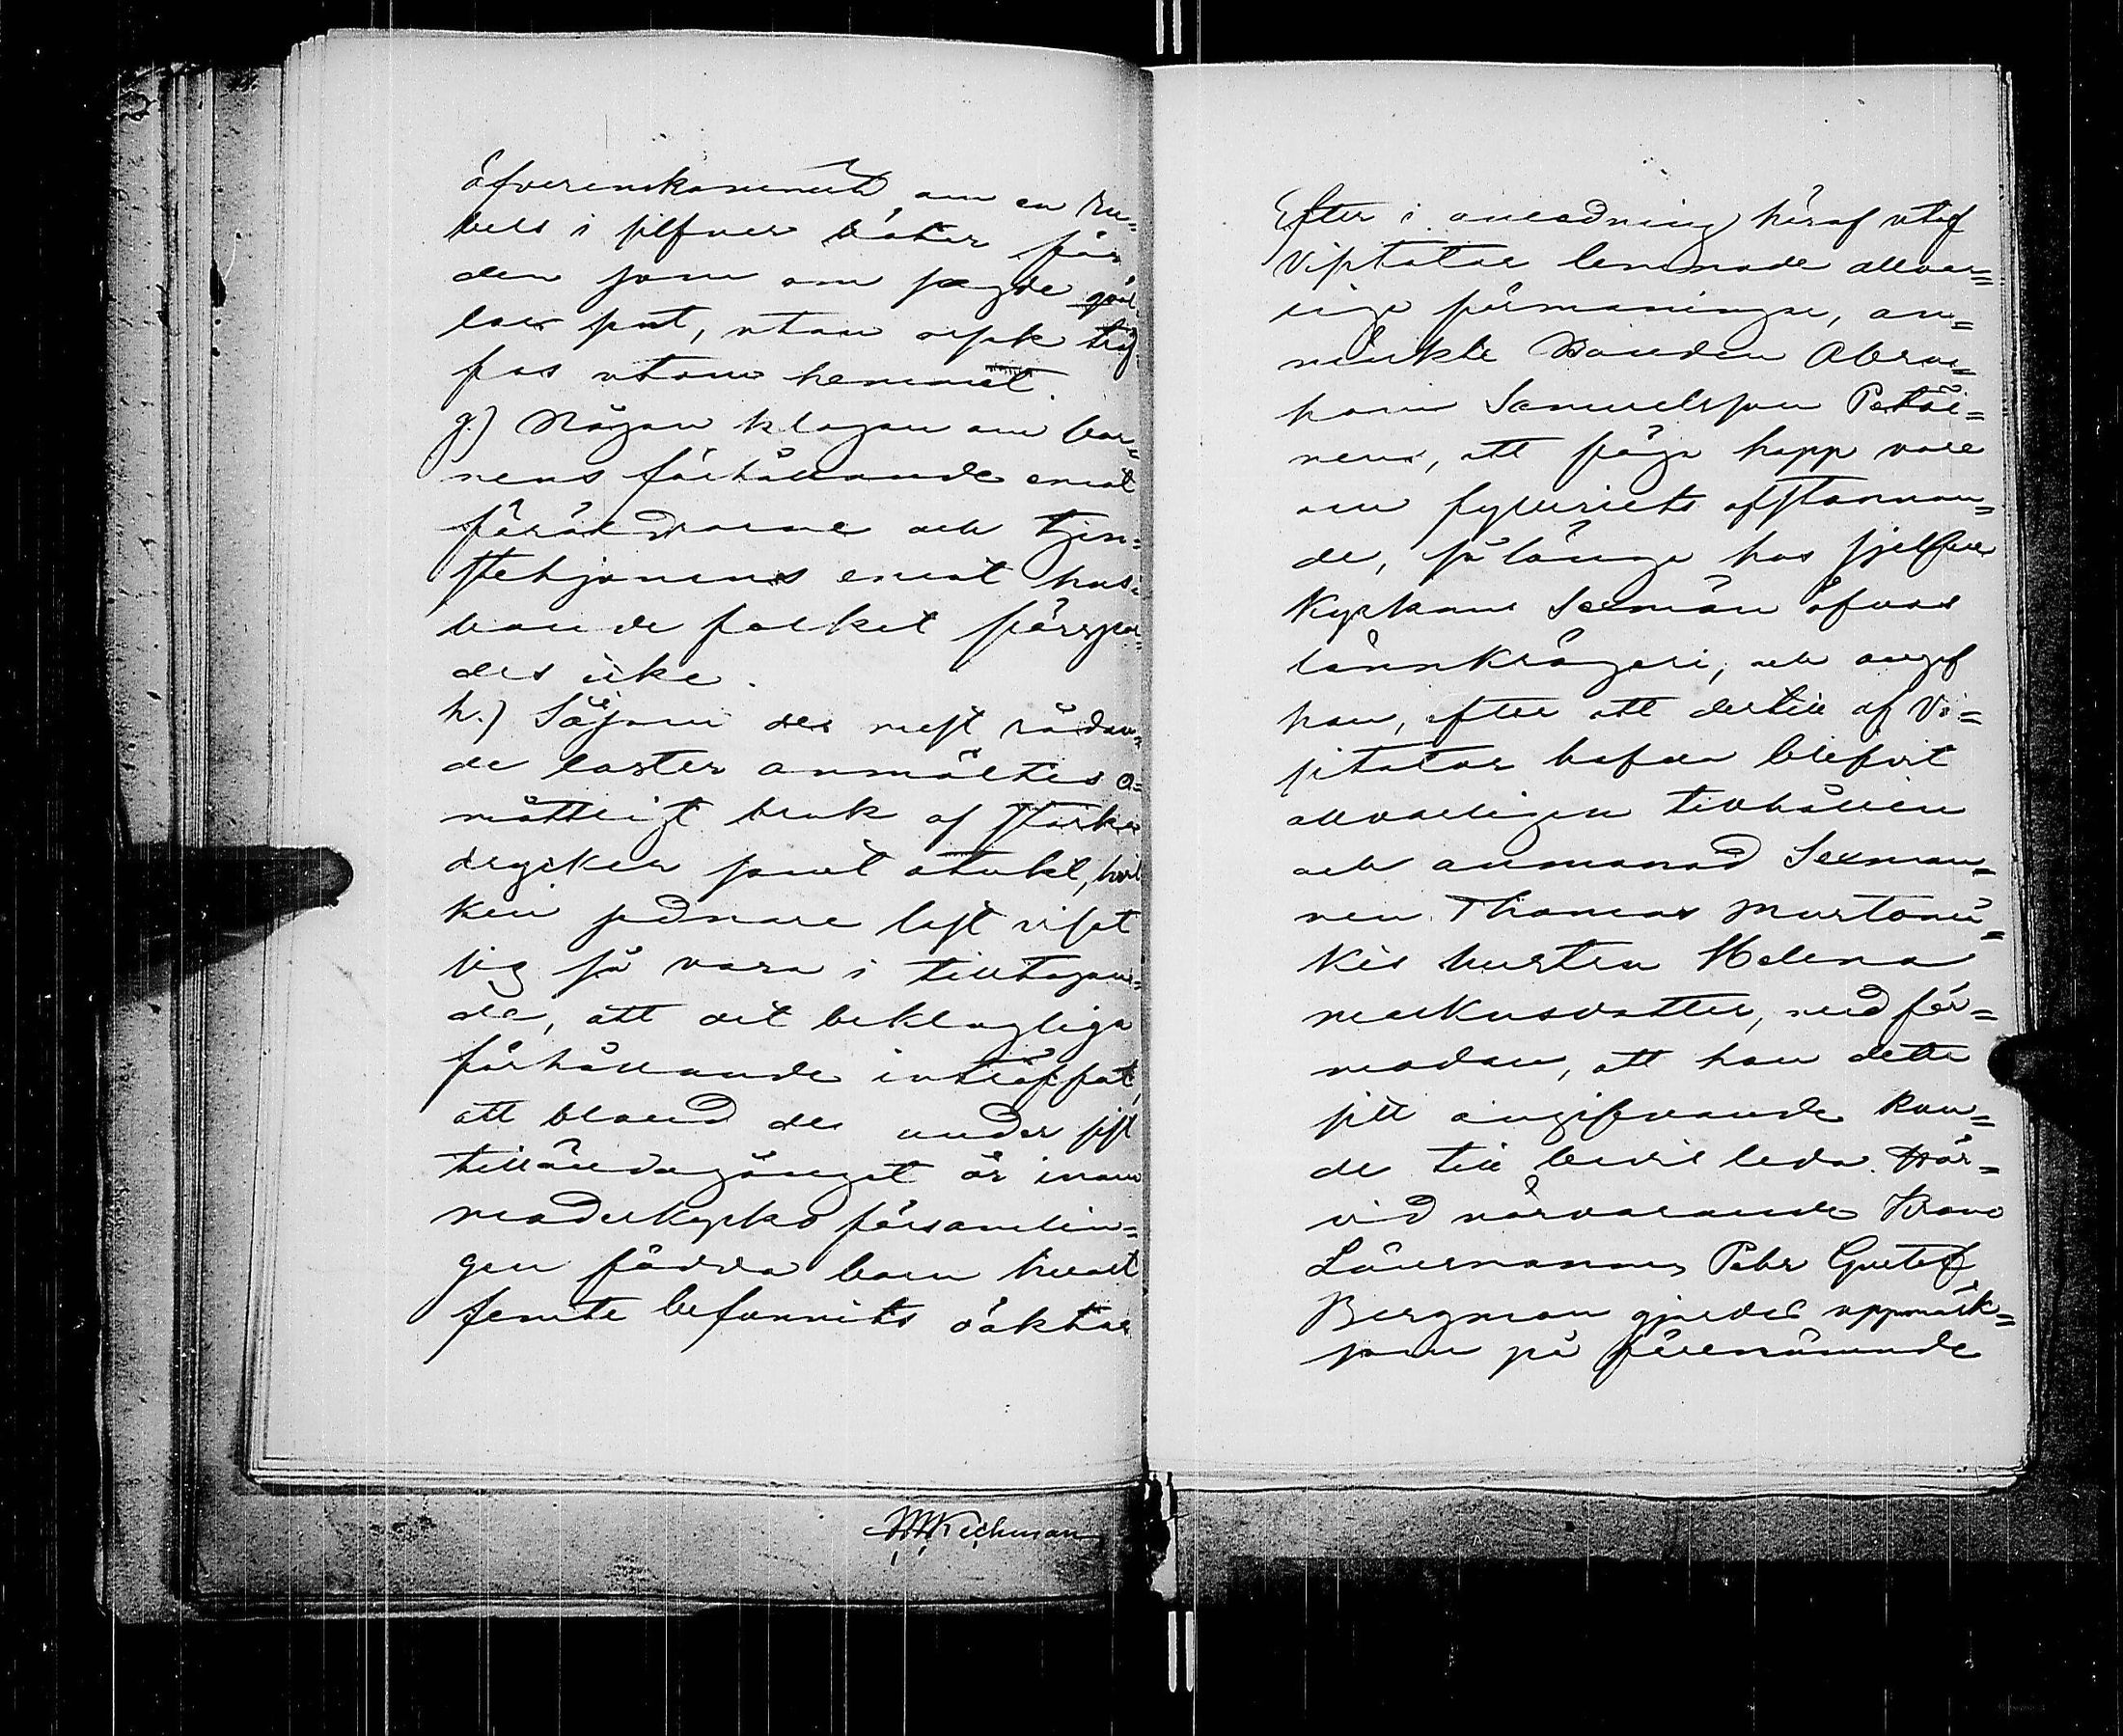 öfverenskommit om en Ru¬
bels i silfver böter för
den som om sagde qväl¬
lar sent, utan orsak träf¬
fas utom hemmet.
g.) Någon klagan om bar¬
nens förhållande emot
föräldrarne och tjen¬
stehjonens emot hus¬
bonde folket förspor¬
des icke.
h.) Såsom de mest rådan¬
de laster anmältes o¬
måttligt bruk af starka
drycker samt otukt, hvil
ken sednare last visat
sig så vara i tilltagan¬
de, att det beklagliga
förhållande inträffat,
att bland de under sist
tilländagångat år inom
moderkyrko församlin¬
gen födda barn hvart
femte befunnits oäkta.
MWKechman
Efter i anledning häraf utaf
Visitator lemnade allvar¬
liga förmaningar, an¬
märkte Bonden Abra¬
ham Samuelsson Petäi¬
nen, att föga hopp vore
om fylleriets afstannan¬
de, så länge hos sjelfva
Kyrkans Sexmän öfvas
lönnkrögeri, och angaf
han, efter att dertill af Vi¬
sitator hafva blifvit
allvarligen tillhållen
och anmanad Sexman¬
nen Thomas Murtomä¬
kis hustru Helena
Markusdotter, med för¬
modan, att han detta
sitt angifvande kun¬
de till bevis leda. Här¬
vid närvarande Krono
Länsmannen Pehr Gustaf
Bergman gjordes uppmärk¬
sam på förenämnde